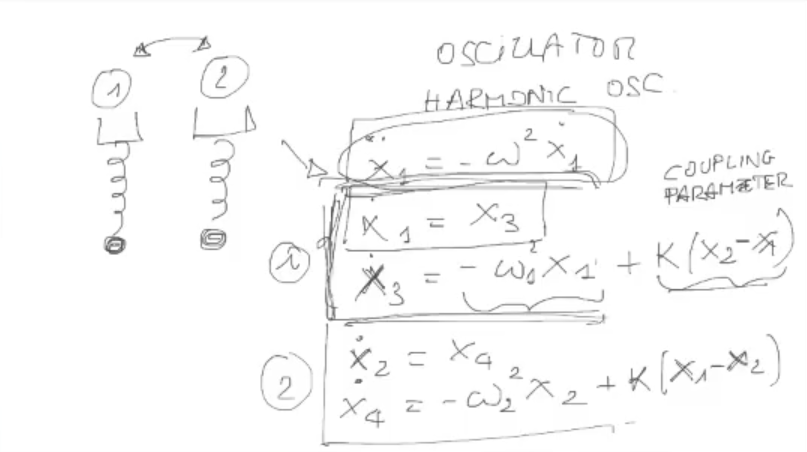 1 2
OSCILLATOR
HARMONIC OSC.
ẍ₁ = -ω² ẋ₁
COUPLING
PARAMETER
ẋ₁ = x₃
1
ẋ₃ = -ω₁² x₁ + K(x₂-x₁)
ẋ₂ = x₄
2
ẋ₄ = -ω₂² x₂ + K(x₁-x₂)